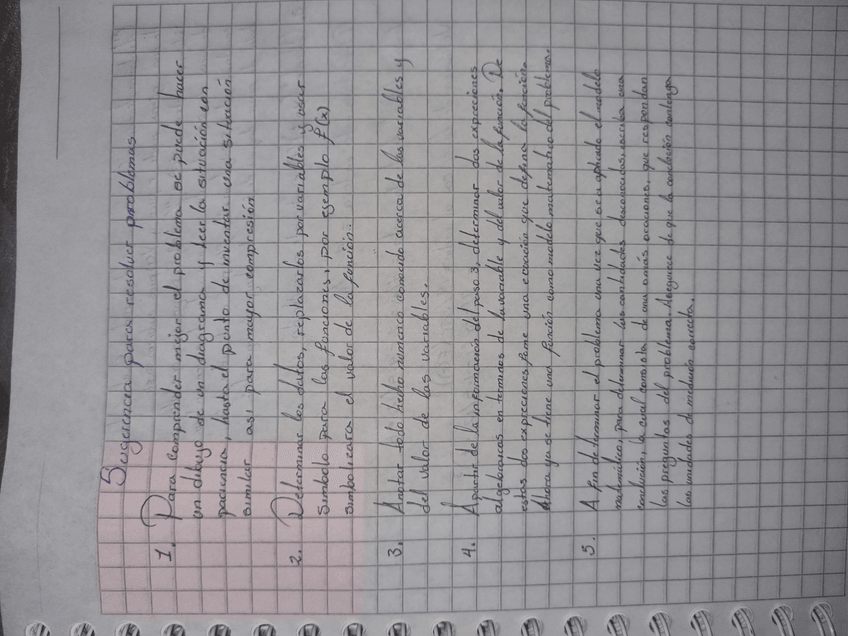 Sugerencia para resolver problemas
1. Para comprender mejor el problema se puede hacer
un dibujo de un diagrama y leer la situación con
paciencia, hasta el punto de inventar una situación
similar así para mayor compresión
2. Determinar los datos, replazarlos por variables y usar
Simbolo para las funciones, por ejemplo f(x)
simbolizara el valor de la función.
3. Anotar todo hecho númerico conocido acerca de las variables y
del valor de las variables.
4. A partir de la información del paso 3, determinar dos expreciones
algebraicas en terminos de la variable y del valor de la función. De
estas dos expreciones forme una ecuación que defina la función.
Ahora ya se tiene una función como modelo matemático del problema.
5. A fin de terminar el problema una vez que sea aplicado el modelo
matemático, para determinar las cantidades desconocidas, escriba una
conclusión, la cual consista de una o más oraciones, que respondan
las preguntas del problema. Asegurece de que la conclusión contenga
las unidades de medición correcta.